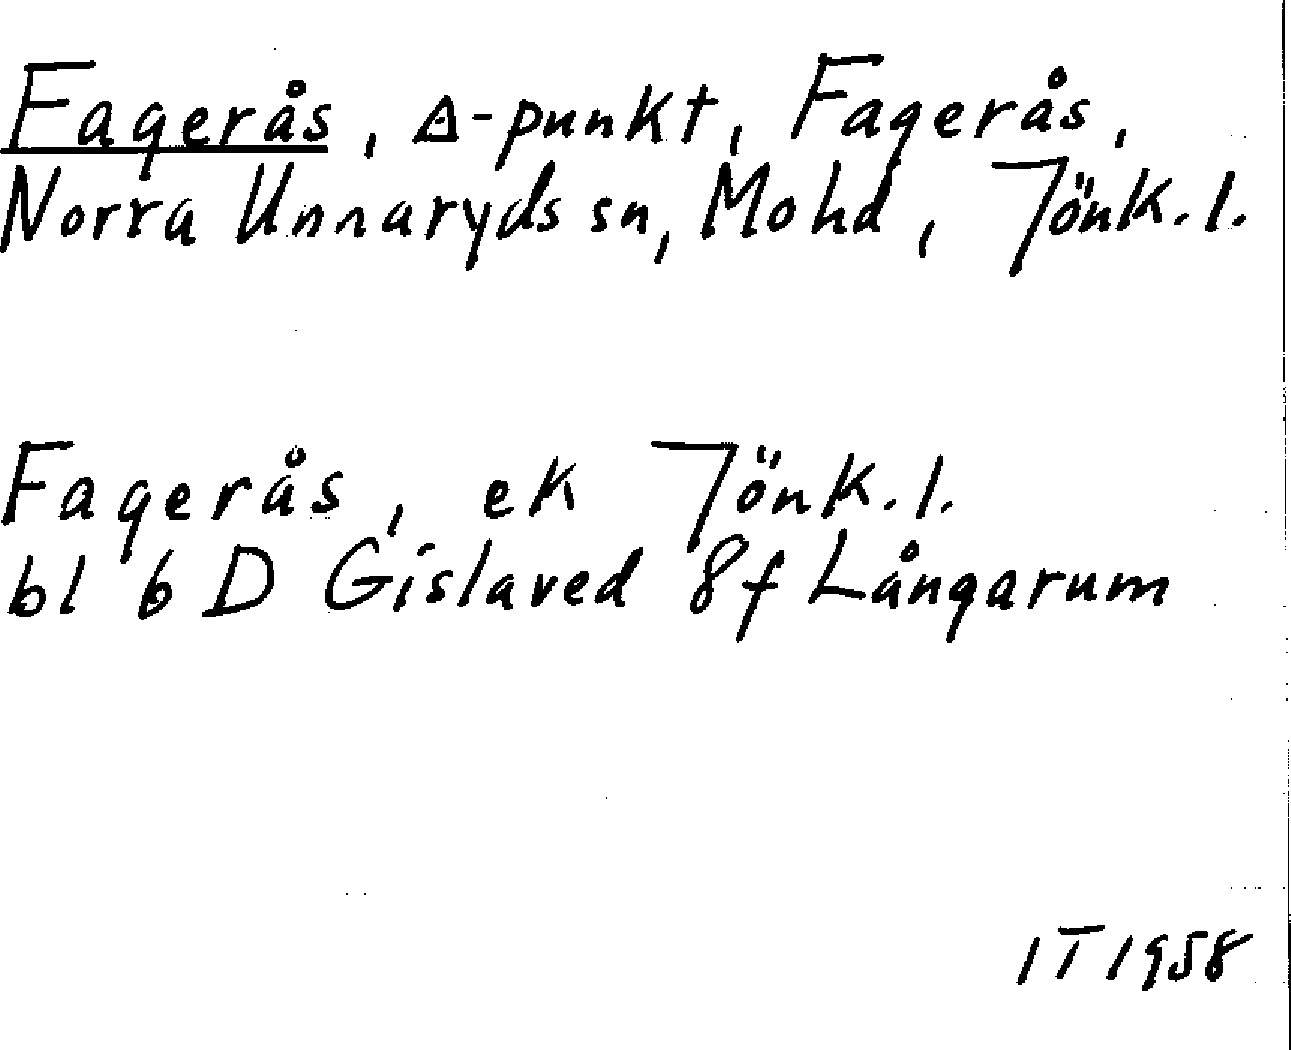 Fagerås, Δ-punkt, Fagerås,
Norra Unnaryds sn, Mohd, Jönk.l.
Fagerås, ek Jönk.l.
bl 6 D Gislaved 8f Långarum
IT 1958